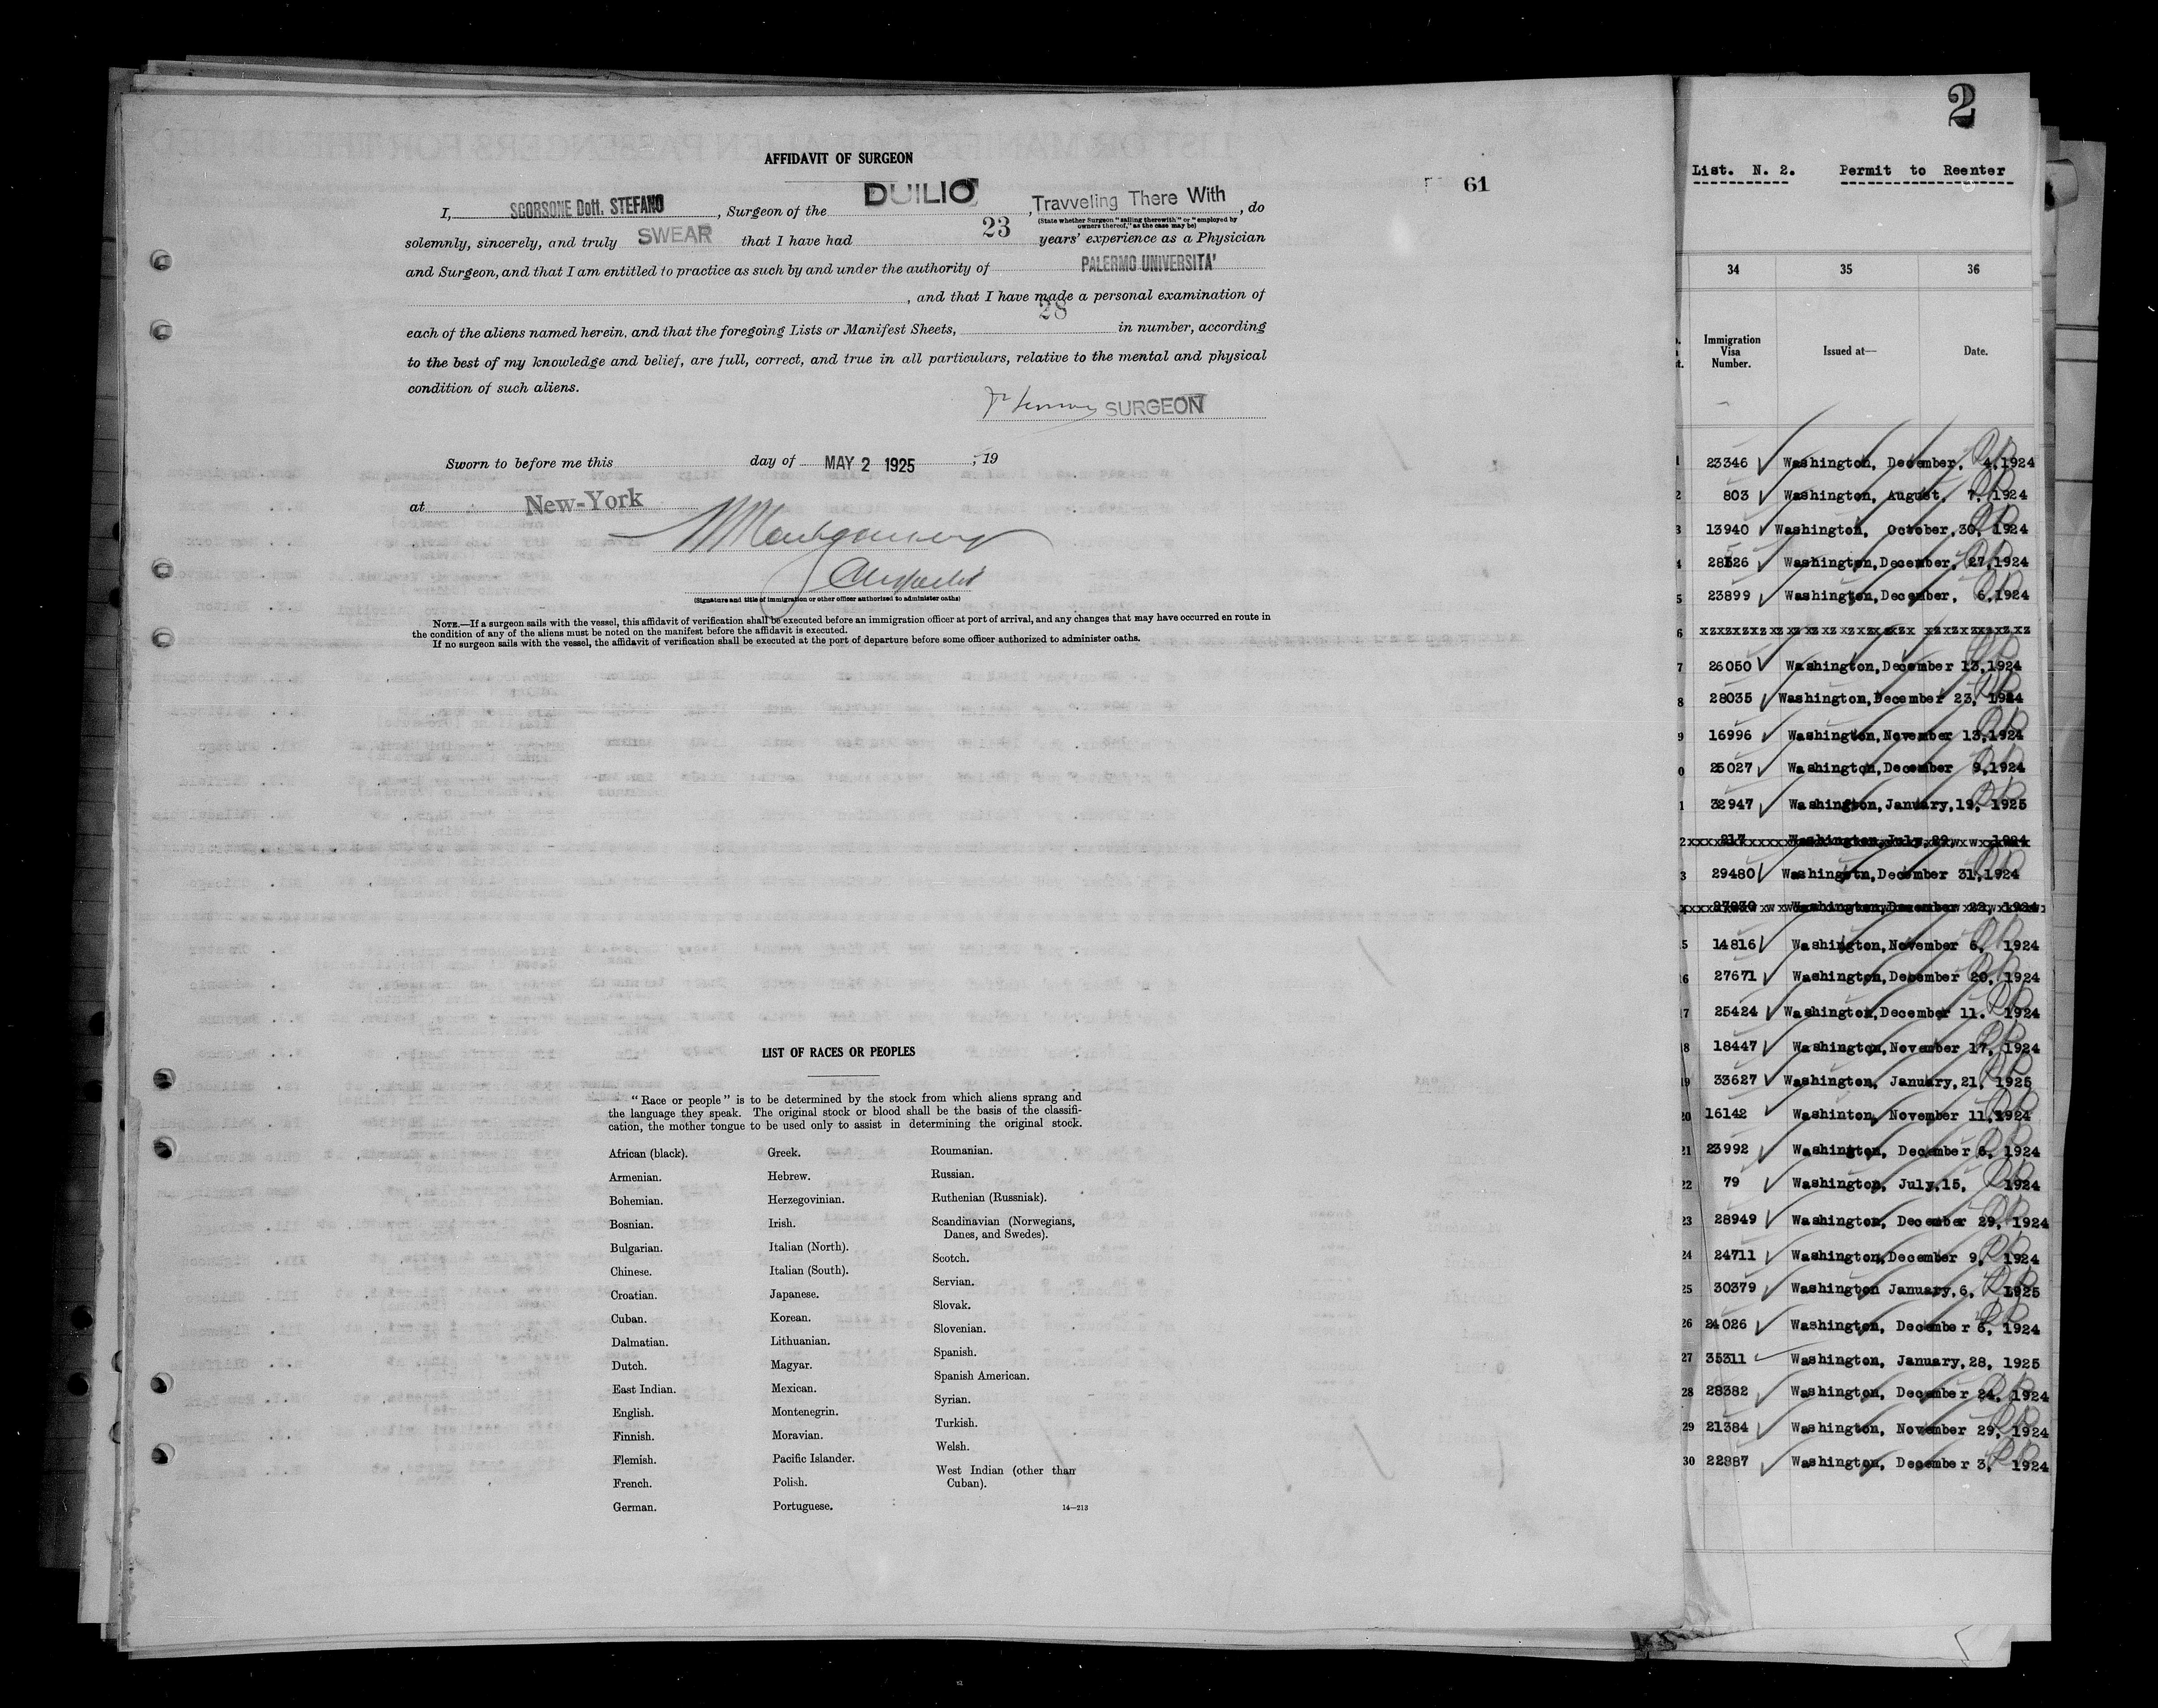 AFFIDAVIT OF SURGEON
61
I, SCORSONE Dott. STEFANO, Surgeon of the DUILIO, Travveling There With, do
(State whether Surgeon "sailing therewith" or "employed by
owners thereof," as the case may be)
solemnly, sincerely, and truly SWEAR that I have had 23 years' experience as a Physician
and Surgeon, and that I am entitled to practice as such by and under the authority of PALERMO UNIVERSITA'
, and that I have made a personal examination of
each of the aliens named herein, and that the foregoing Lists or Manifest Sheets, 28 in number, according
to the best of my knowledge and belief, are full, correct, and true in all particulars, relative to the mental and physical
condition of such aliens.
SURGEON
Sworn to before me this day of MAY 2 1925, 19
at New-York
(Signature and title of immigration or other officer authorized to administer oaths)
NOTE.—If a surgeon sails with the vessel, this affidavit of verification shall be executed before an immigration officer at port of arrival, and any changes that may have occurred en route in
the condition of any of the aliens must be noted on the manifest before the affidavit is executed.
If no surgeon sails with the vessel, the affidavit of verification shall be executed at the port of departure before some officer authorized to administer oaths.
LIST OF RACES OR PEOPLES
"Race or people" is to be determined by the stock from which aliens sprang and
the language they speak. The original stock or blood shall be the basis of the classifi-
cation, the mother tongue to be used only to assist in determining the original stock.
African (black).
Armenian.
Bohemian.
Bosnian.
Bulgarian.
Chinese.
Croatian.
Cuban.
Dalmatian.
Dutch.
East Indian.
English.
Finnish.
Flemish.
French.
German.
Greek.
Hebrew.
Herzegovinian.
Irish.
Italian (North).
Italian (South).
Japanese.
Korean.
Lithuanian.
Magyar.
Mexican.
Montenegrin.
Moravian.
Pacific Islander.
Polish.
Portuguese.
Roumanian.
Russian.
Ruthenian (Russniak).
Scandinavian (Norwegians,
Danes, and Swedes).
Scotch.
Servian.
Slovak.
Slovenian.
Spanish.
Spanish American.
Syrian.
Turkish.
Welsh.
West Indian (other than
Cuban).
14—213
2
List. N. 2. Permit to Reenter
34 35 36
Immigration
Visa
Number.
Issued at—
Date.
1 23346 Washington, December, 4,1924
2 803 Washington, August, 7, 1924
3 13940 Washington, October,30, 1924
4 28326 Washington,December, 27,1924
5 23899 Washington,December, 6,1924
6 xzxzxzxz xz xz xz xz xzxzxzx xzxzxzxzxzxz
7 26050 Washington,December 13,1924
8 28035 Washington,December 23, 1924
9 16996 Washington,November 13,1924
0 25027 Washington,December 9,1924
1 32947 Washington,January,19, 1925
2 217 Washington,July,29, 1924
3 29480 Washingotn,December 31,1924
Washington,December 22, 1924
5 14816 Washington,November 6, 1924
16 27671 Washington,December 20, 1924
17 25424 Washington,December 11. 1924
18 18447 Washington,November 17, 1924
19 33627 Washington, January,21, 1925
20 16142 Washinton, November 11,1924
21 23992 Washington, December 6, 1924
22 79 Washington, July,15, 1924
23 28949 Washington, December 29, 1924
24 24711 Washington,December 9, 1924
25 30379 Washington January,6, 1925
26 24026 Washington, December 6, 1924
27 35311 Washington, January,28, 1925
28 28382 Washington, December 24, 1924
29 21384 Washington, November 29, 1924
30 22987 Washington, December 3, 1924